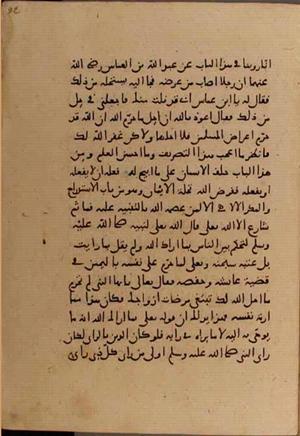 انا روينا في هذا الباب عن عبد الله بن العباس رضي الله
عنهما ان رجلا اصاب من عرضه فجا اليه يستحله من ذلك
فقال له يا ابن عباس اني قد نلت منك فاجعلني في حل
من ذلك فقال اعوذ بالله ان احل ما حرم الله ان الله قد
حرم اعراض المسلمين فلا احلها ولكن غفر الله لك
فانظر ما اعجب هذا التصريف وما احسن العلم ومن
هذا الباب حلف الانسان على ما ابيح له فعله ان لا يفعله
او يفعله ففرض الله تحلة الايمان وهو من باب الاستدراج
والمكر الالهي الا لمن عصمه الله بالتنبيه عليه فما ثم
شارع الا الله تعلى قال الله تعلى لنبيه صلى الله عليه
وسلم لتحكم بين الناس بما اراك الله ولم يقل بما رايت
بل عتبه سبحنه وتعلى لما حرم على نفسه باليمين في
قضية عائشه وحفصه فقال تعالى يايها النبي لم تحرم
ما احل الله لك تبتغي مرضات ازواجك فكان هذا مما
ارته نفسه فهذا يدلك ان قوله تعلى بما اراك الله انه ما
يوحى به اليه لا ما يراه في رايه فلو كان الدين بالراي لكان
راي النبي صلى الله عليه وسلم اولى من راي كل ذي راي